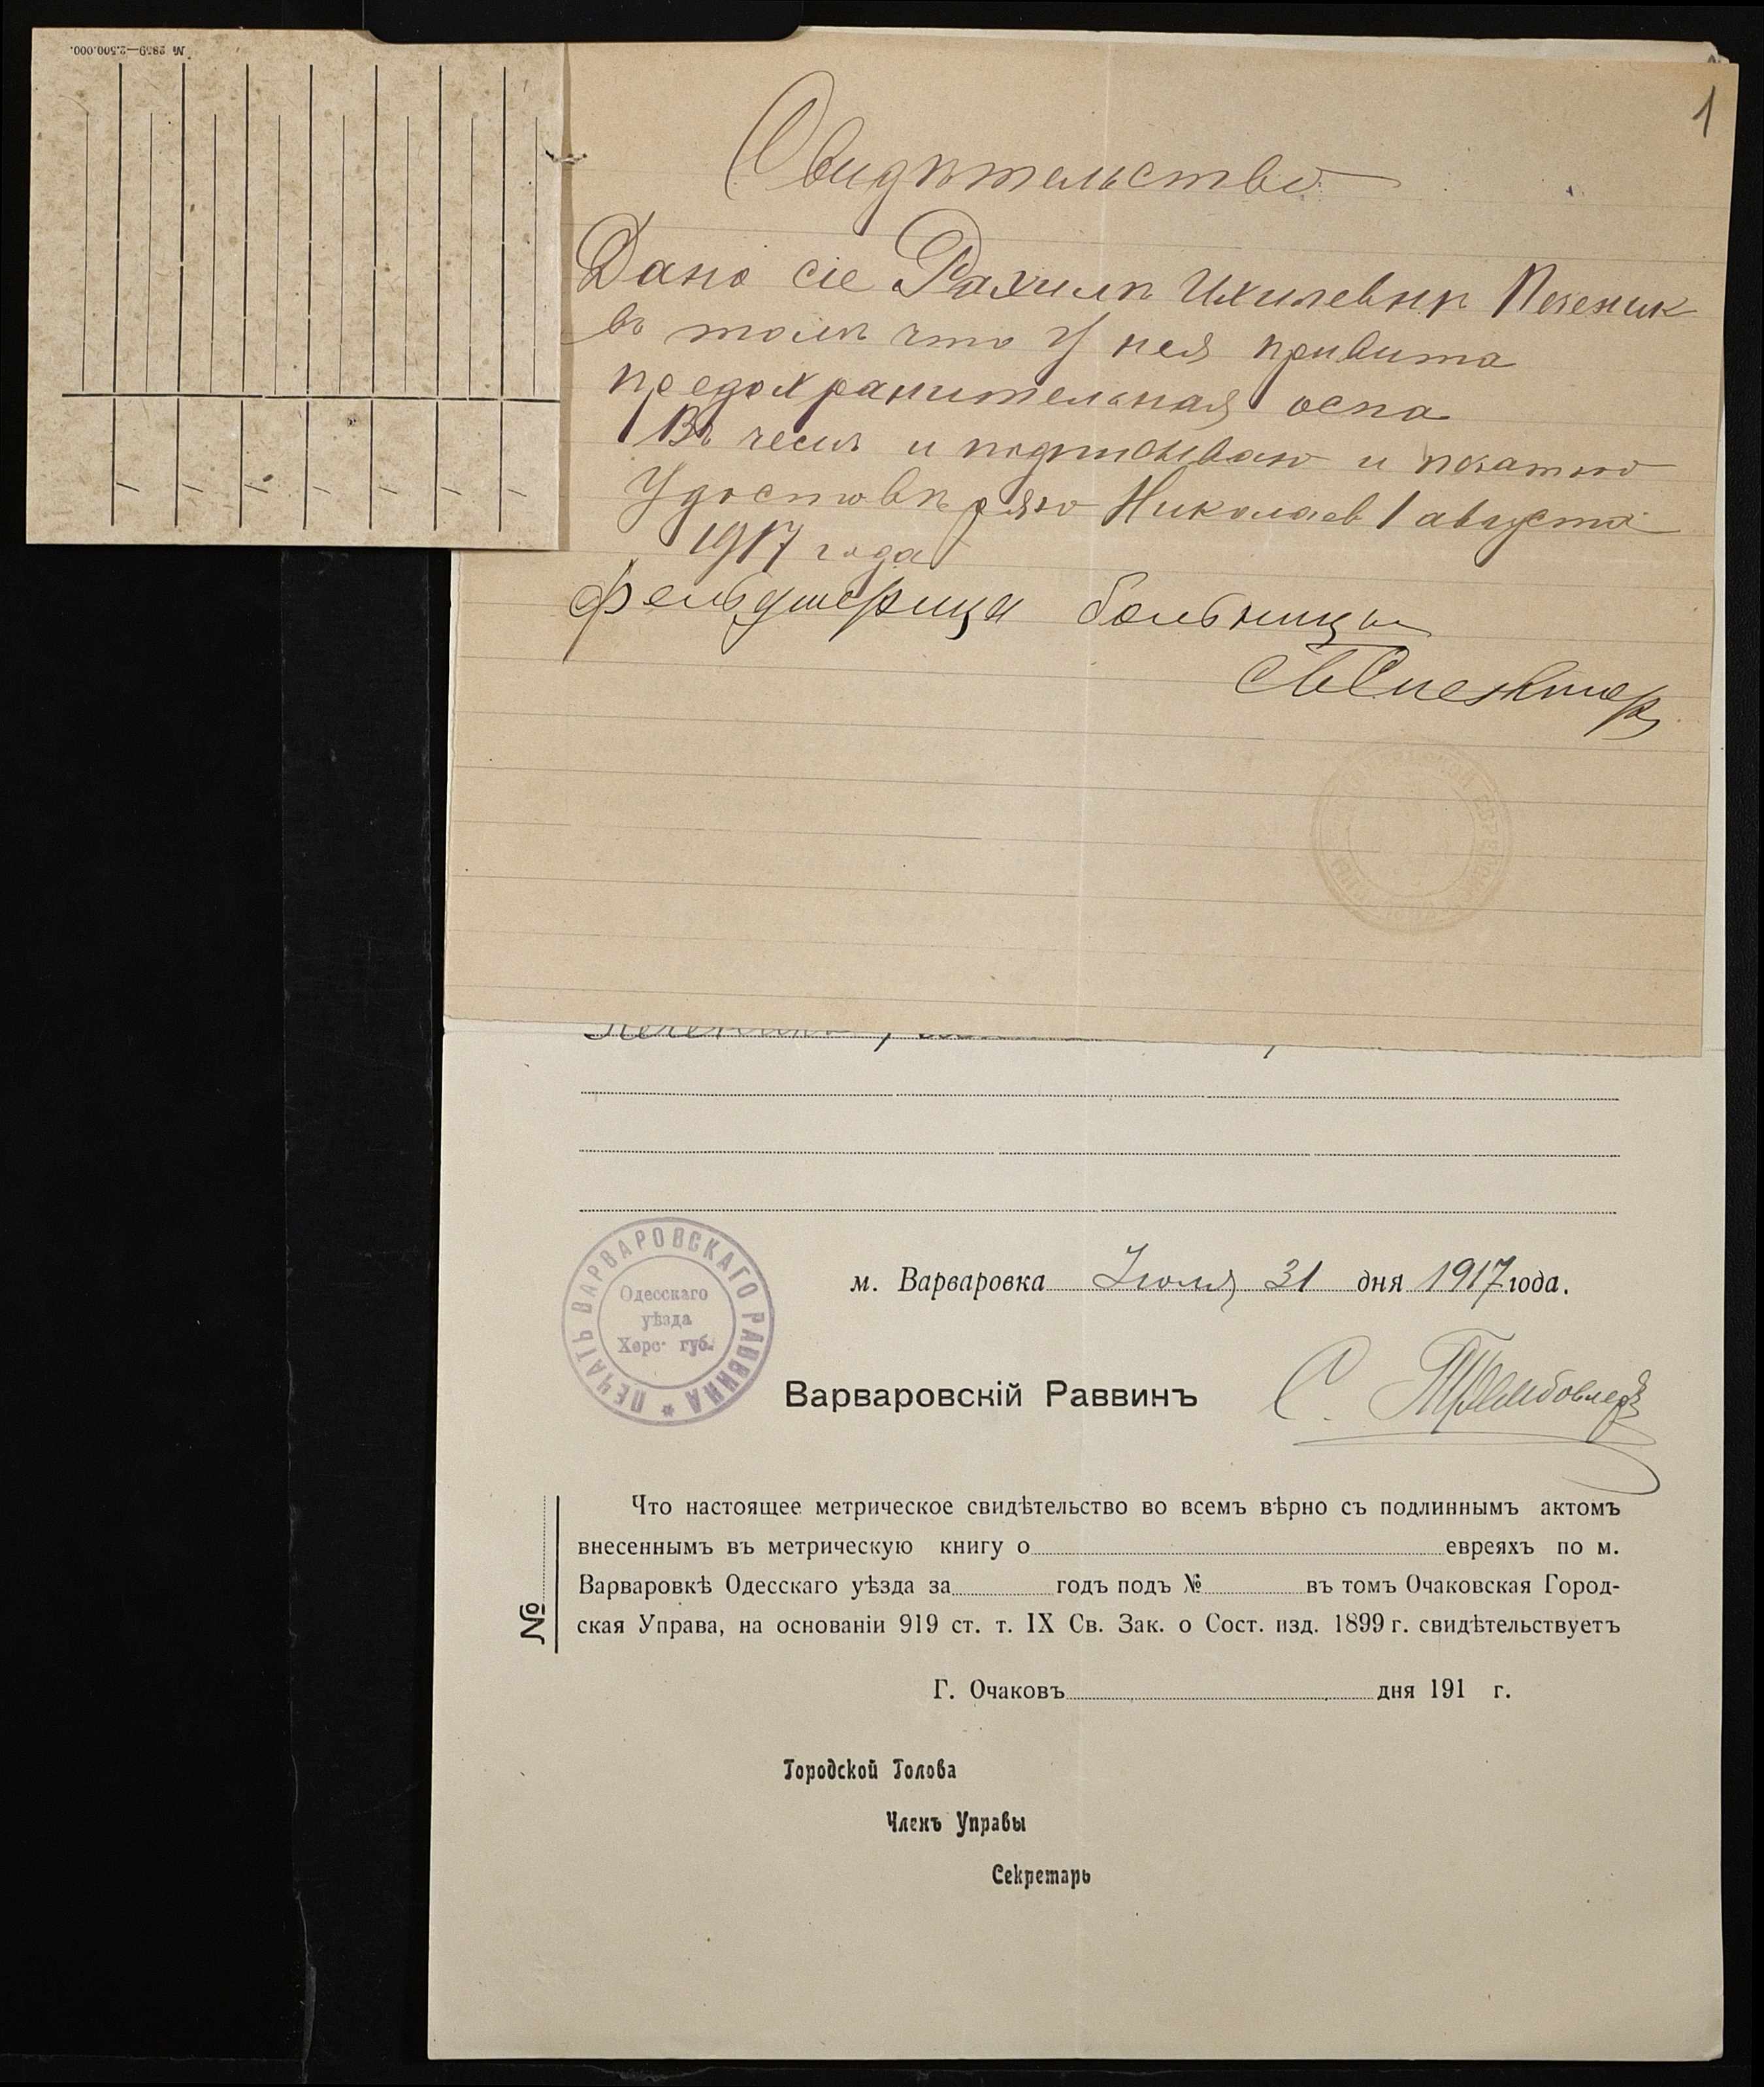 № 2859—2.500.000.
1
Свидѣтельство
Дано сіе Рахилѣ Ихилевнѣ
въ томъ что у нея привита
предохранительная оспа
Въ чемъ и подписываю и печатью
Удостовѣряю Николаев 1 августа
1917 года
фельдшерица больницы
м. Варваровка Іюля 31 дня 1917 года.
ПЕЧАТЬ ВАРВАРОВСКАГО РАВВИНА *
Одесскаго
уѣзда
Херс. губ.
Варваровскій Раввинъ С.
Что настоящее метрическое свидѣтельство во всемъ вѣрно съ подлиннымъ актомъ
внесеннымъ въ метрическую книгу о евреяхъ по м.
Варваровкѣ Одесскаго уѣзда за годъ подъ № въ томъ Очаковская Город-
ская Управа, на основаніи 919 ст. т. IX Св. Зак. о Сост. изд. 1899 г. свидѣтельствуетъ
№
Г. Очаковъ дня 191 г.
Городской Голова
Членъ Управы
Секретарь